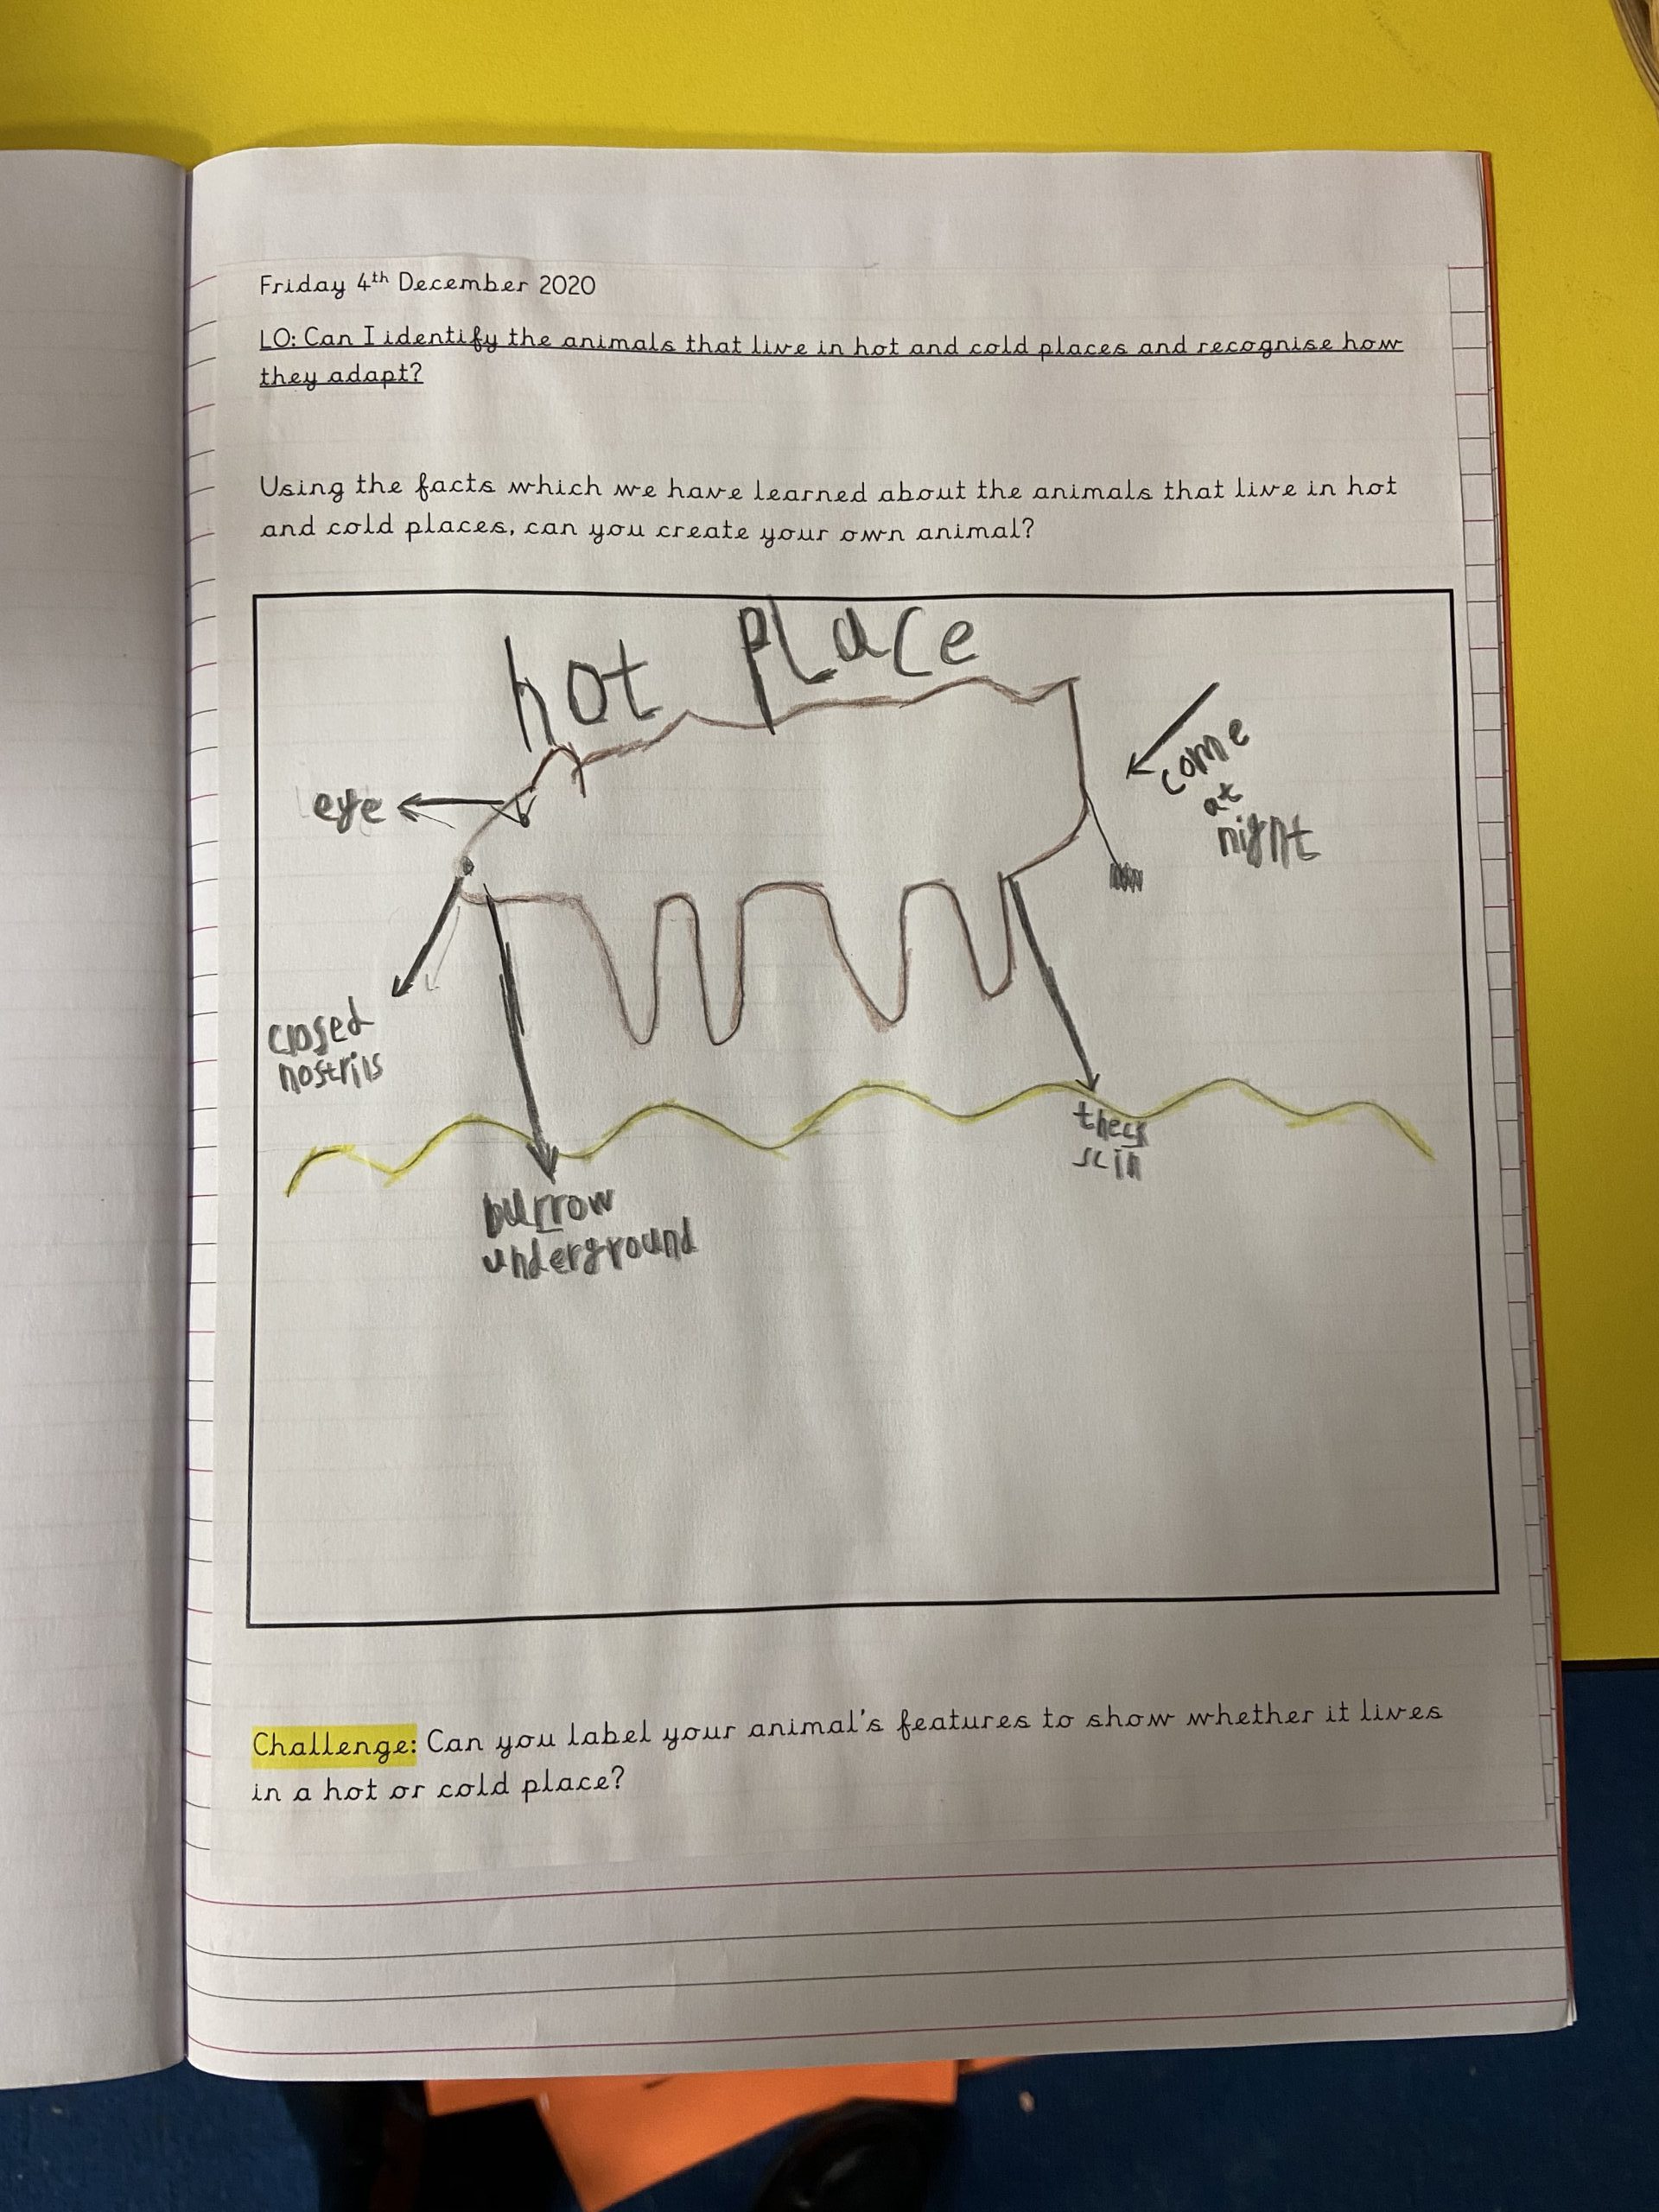 Friday 4th December 2020
LO: Can I identify the animals that live in hot and cold places and recognise how
they adapt?
Using the facts which we have learned about the animals that live in hot
and cold places, can you create your own animal?
hot place
eye
come
at
night
closed
nostrils
theck
scin
burrow
underground
Challenge: Can you label your animal's features to show whether it lives
in a hot or cold place?